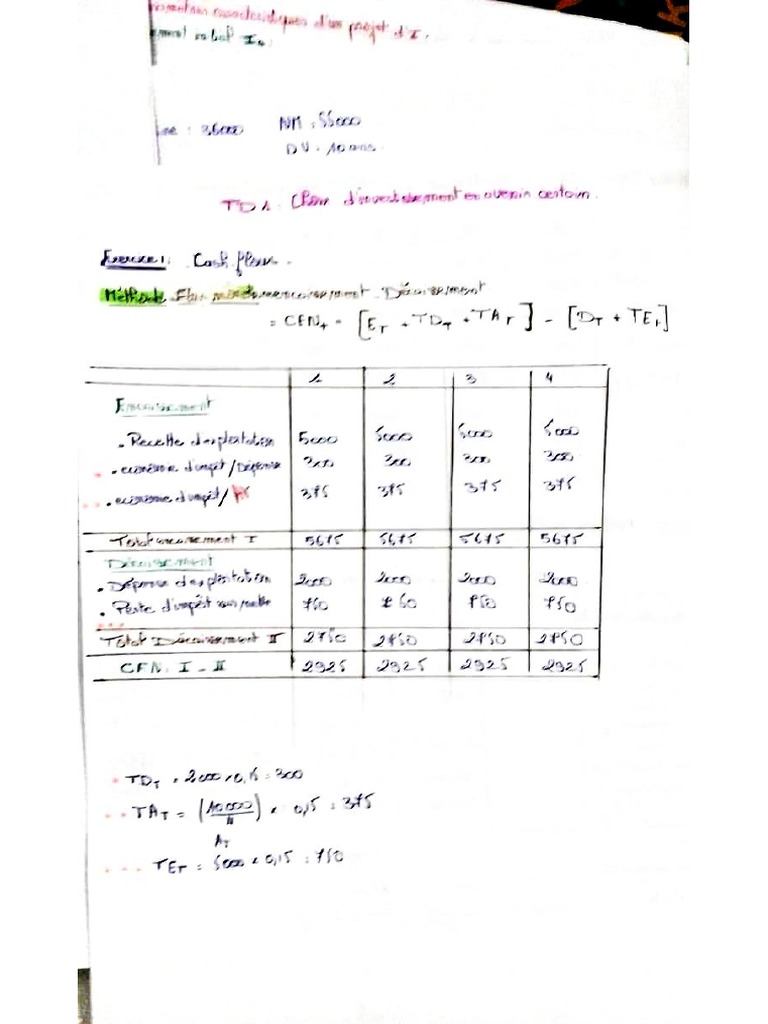 d'un projet d'I.
I₀.
: 36000 NM : 55000
DV : 10 ans
TD 1 : Choix d'investissement en avenir certain.
Exercice 1 : Cash flows.
Méthode Flux Décaissement
= CFN_T = [E_T + TD_T + TA_T] - [D_T + TE_T]
1 2 3 4
Encaissement
. Recette d'exploitation 5000 5000 5000 5000
. économie d'impôt/Dépense 300 300 300 300
. économie d'impôt/ 375 375 375 375
Total encaissement I 5675 5675 5675 5675
Décaissement
. Dépense d'exploitation 2000 2000 2000 2000
. Perte d'impôt sur 750 750 750 750
Total Décaissement II 2750 2750 2750 2750
CFN. I - II 2925 2925 2925 2925
. TD_T = 2000 x 0,15 = 300
.. TA_T = (10000/4) x 0,15 = 375
A_T
... TE_T = 5000 x 0,15 = 750